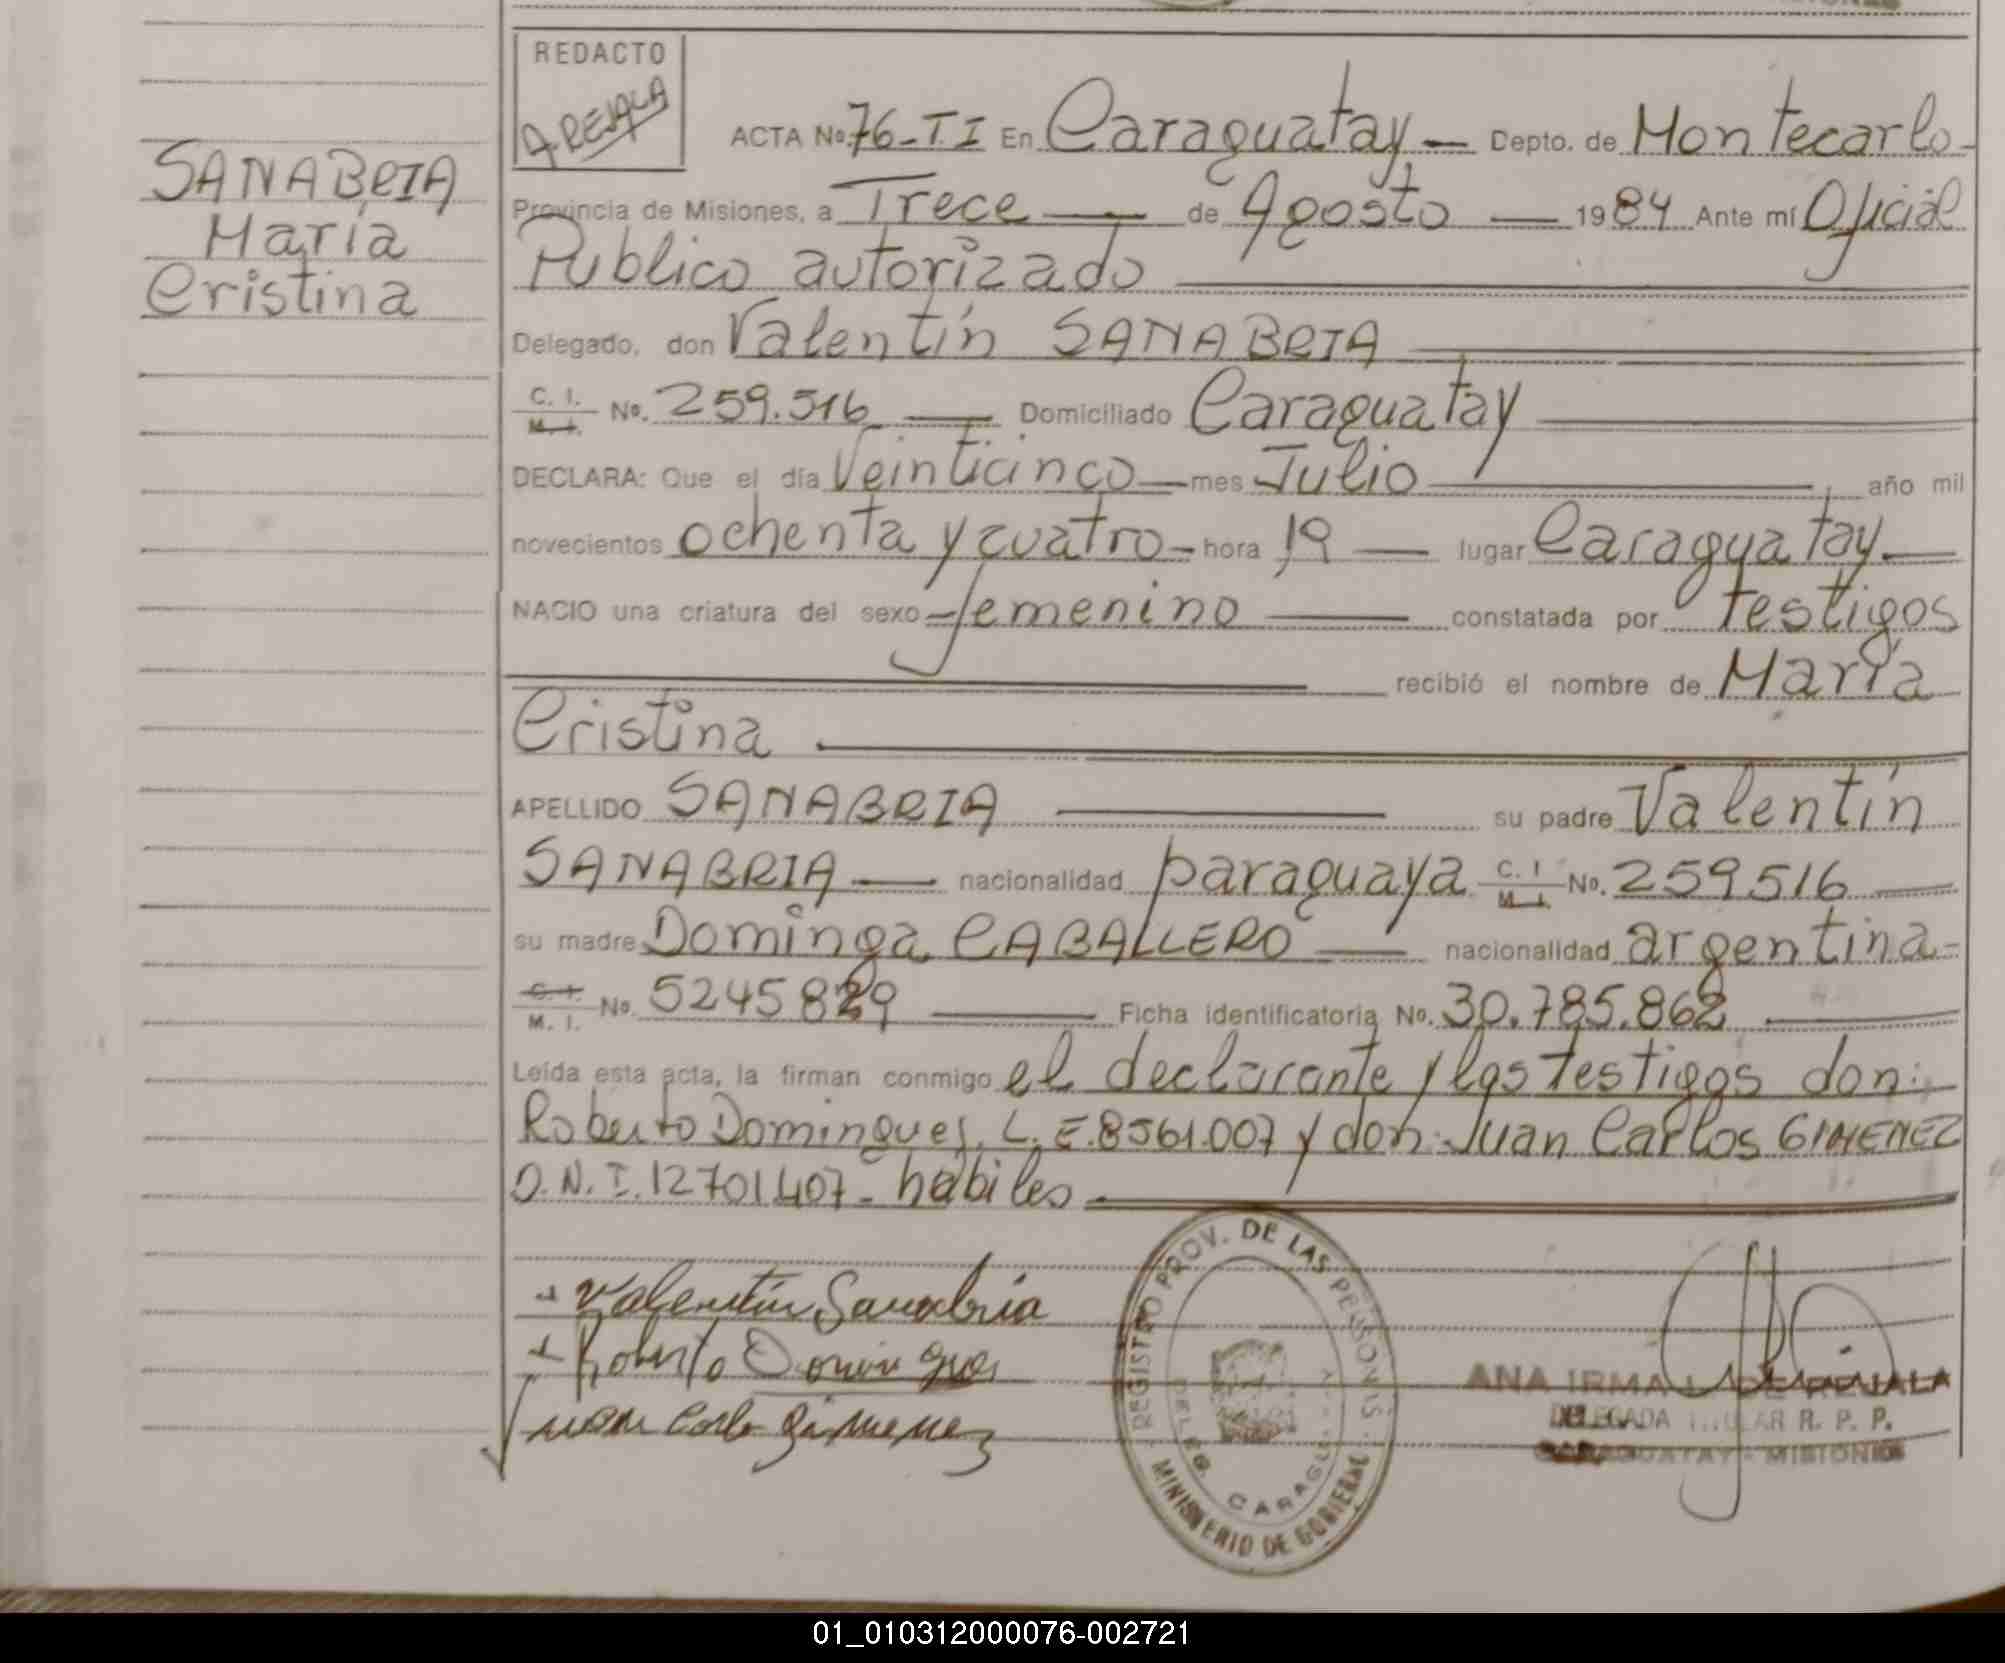 REDACTO
A. REJALA
SANABRIA
María
Cristina
ACTA No. 76-T.I En Caraguatay — Depto. de Montecarlo
Provincia de Misiones, a Trece — de Agosto — 1984 Ante mí Oficial
Publico autorizado
Delegado, don Valentín SANABRIA
C. I. M. I. No. 259.516 — Domiciliado Caraguatay
DECLARA: Que el día Veinticinco — mes Julio — año mil
novecientos ochenta y cuatro — hora 19 — lugar Caraguatay —
NACIO una criatura del sexo femenino — constatada por testigos
recibió el nombre de María
Cristina
APELLIDO SANABRIA — su padre Valentín
SANABRIA — nacionalidad paraguaya C. I M. I. No. 259516 —
su madre Dominga CABALLERO — nacionalidad argentina
C. I. M. I. No. 5245829 — Ficha identificatoria No. 30.785.862 —
Leída esta acta, la firman conmigo el declarante y los testigos don:
Roberto Domingues, L. E. 8561.007 y don: Juan Carlos GIMENEZ
D.N.I. 12701407 - habiles
Valentín Sanabria
Roberto Domingues
Juan Carlos Gimenez
REGISTRO PROV. DE LAS PERSONAS
MINISTERIO DE GOBIERNO
DELEG. CARAGUATAY
ANA IRMA DE REJALA
DELEGADA TITULAR R. P. P.
CARAGUATAY - MISIONES
01_010312000076-002721